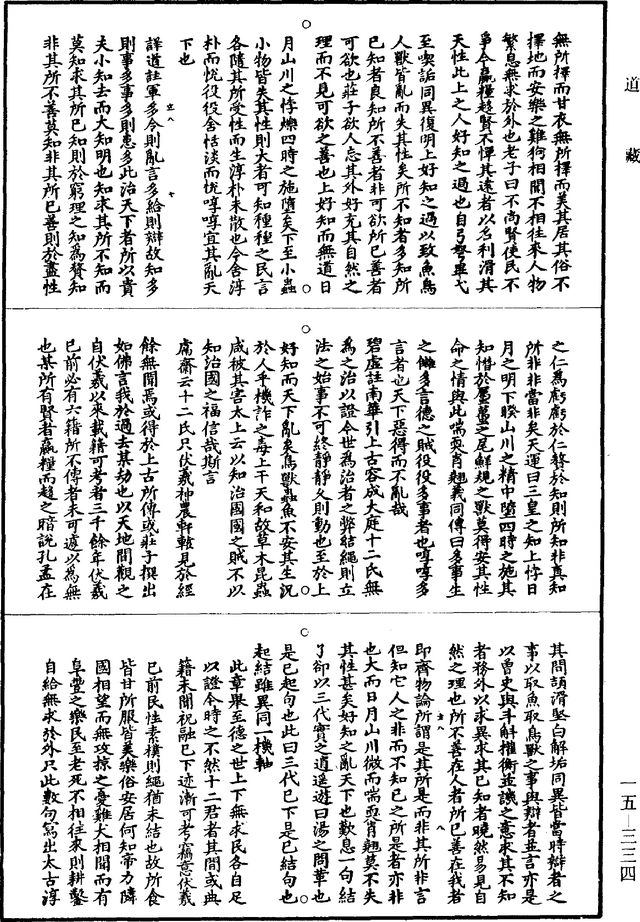 道藏
無所擇而甘衣無所擇而美其居其俗不
擇地而安樂之雞狗相聞不相往來人物
繁息無求於外也老子曰不尚賢使民不
爭今贏糧趨賢不憚其遠者以名利滑其
天性此上之人好知之過也自弓弩畢弋
至喫詬同異復明上好知之過以致魚鳥
人獸皆亂而失其性矣所不知者多知所
已知者良知所不善者非可欲所已善者
可欲也莊子欲人忘其外好充其自然之
理而不見可欲之善也上好知而無道日
月山川之悖爍四時之施墮矣下至小蟲
小物皆失其性則大者可知種種之民言
各隨其所受性而生淳朴未散也今舍淳
朴而悅役役舍恬淡而悅啍啍宜其亂天
下也
詳道註軍多令則亂言多給則辯故知多
則事多事多則患多此治天下者所以貴
夫小知去而大知明也知求其所不知而
莫知求其所已知則於窮理之知為瞀知
非其所不善莫知非其所已善則於盡性
之仁為虧虧於仁瞀於知則所知非真知
所非非當非矣天運曰三皇之知上悖日
月之明下睽山川之精中墮四時之施其
知憯於蠆之尾鮮規之獸莫得安其性
命之情與此喘耎肖翹義同傳曰多事生
之讎多言德之賊役役多事者也啍啍多
言者也天下惡得而不亂哉
碧虛註南華引上古容成大庭十二氏無
為之治以證今世為治者之弊結繩則立
法之始事不可終靜靜久則動也至於上
好知而天下亂矣鳥獸蟲魚不安其生況
於人乎機詐之毒上干天和故草木昆蟲
咸被其害太上云以知治國國之賊不以
知治國之福信哉斯言
鬳齋云十二氏只伏羲神農軒轅見於經
餘無聞焉或得於上古所傳或莊子撰出
如佛言我於過去某劫也以天地間觀之
自伏羲以來載籍可考者三千餘年伏羲
已前必有六籍所不傳者未可遽以為無
也某所有賢者贏糧而趨之暗說孔孟在
其間頡滑堅白解垢同異皆當時辯者之
事以取魚取鳥獸之事與辯者並言亦是
以曾史與斗斛權衡並議之意求其不知
者務外以求異求其已知者曉然易見自
然之理也所不善在人者所已善在我者
即齊物論所謂是其所是而非其所非言
但知它人之非而不知已之所是者亦非
也大而日月山川微而喘耎肖翹莫不失
其性甚矣好知之亂天下也歎息一句結
了卻以三代實之逍遙遊曰湯之問棘也
是已起句也此曰三代已下是已結句也
起結雖異同一機軸
此章舉至德之世上下無求民各自足
以證今時之不然十二君者其間或典
籍未聞祝融已下迹漸可考竊意伏羲
已前民性素樸則繩猶未結也故所食
皆甘所服皆美樂俗安居何知帝力隣
國相望而無攻掠之憂雞犬相聞而有
阜豐之樂民至老死不相往來則耕鑿
自給無求於外只此數句寫出太古淳
一五—三三四